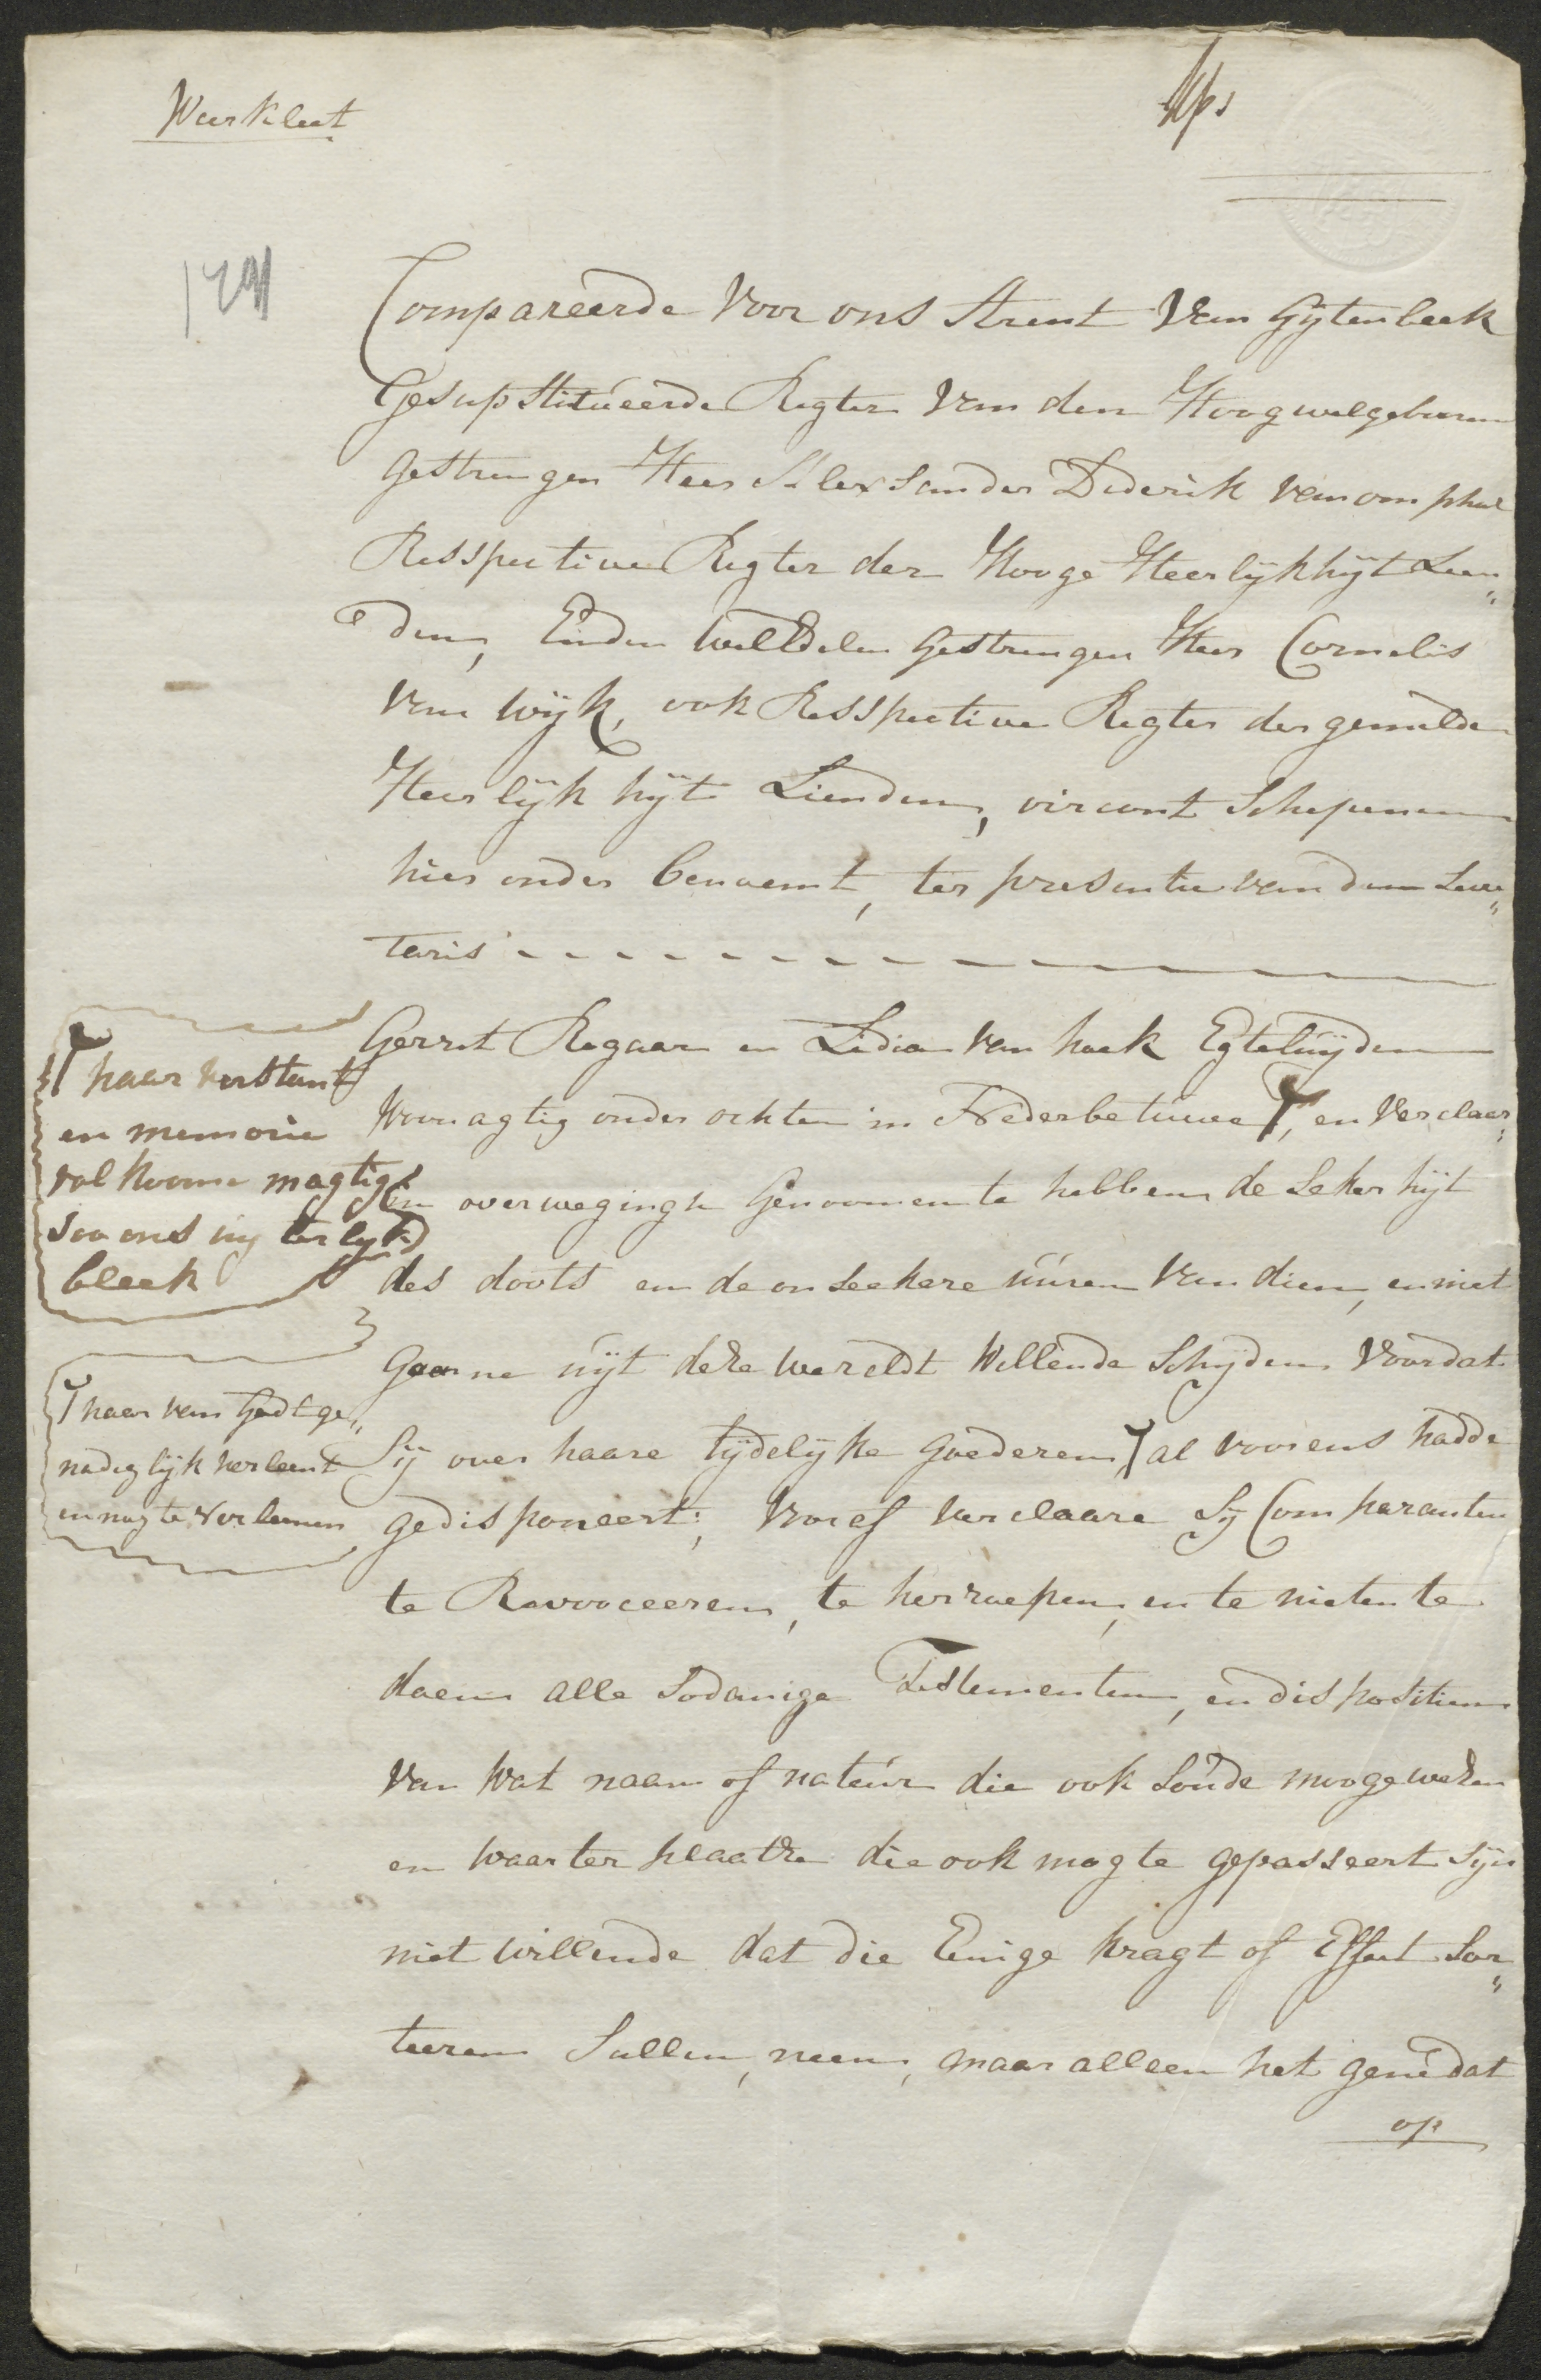 Weerkleet
Comparéerde Voor ons Arent Van Gijtenbeek
Gesupstitueerde Regter Van den Hoogwelgebooren
Gestrengen Heer Alexsander Diderik van omphal
Resspective Regter der Hooge Heerlijkhijt Lien„
den, Einden WelEdelen Gestrengen Heer Cornelis
Van Wijk, ook Resspective Regter der gemelde
Heerlijkhijt Lienden, Schepenen
hier onder benoemt, ter presentie van den Secre„
taris
Gerret Regaar en Lidia van hoek Egteluijden
Woonagtig onder ochten in Nederbetuwe Ŧ, en Verclaar„
en overwegingh Genoomen te hebben de Sekerhijt
des doots en de onseekere úúren Van dien, en niet
Gaarne uijt dese wereldt Willende Schijden Voordat
Sij over haare tijdelijke goederen Ŧ al voorens hadde
gedisponeert; Vooref verclaare Sij Comparanten
te Revooceeren, te herroepen, en te nieten te
doen alle Sodanige Testementen, en dispositien
Van Wat naam of natuúr die ook Soúde mooge wesen
en Waar ter plaatse die ook mogte gepasseert Sijn
niet Willende dat die Eenige kragt of Effect Sor„
teeren Sullen, neen, maar alleen het gené dat
op
Ŧ haar verstant
en memorie
volkoome magtig
soo ons uijterlijk
bleek
Ŧ haar van Godt ge„
nadiglijk verleent
en nog te verleenen